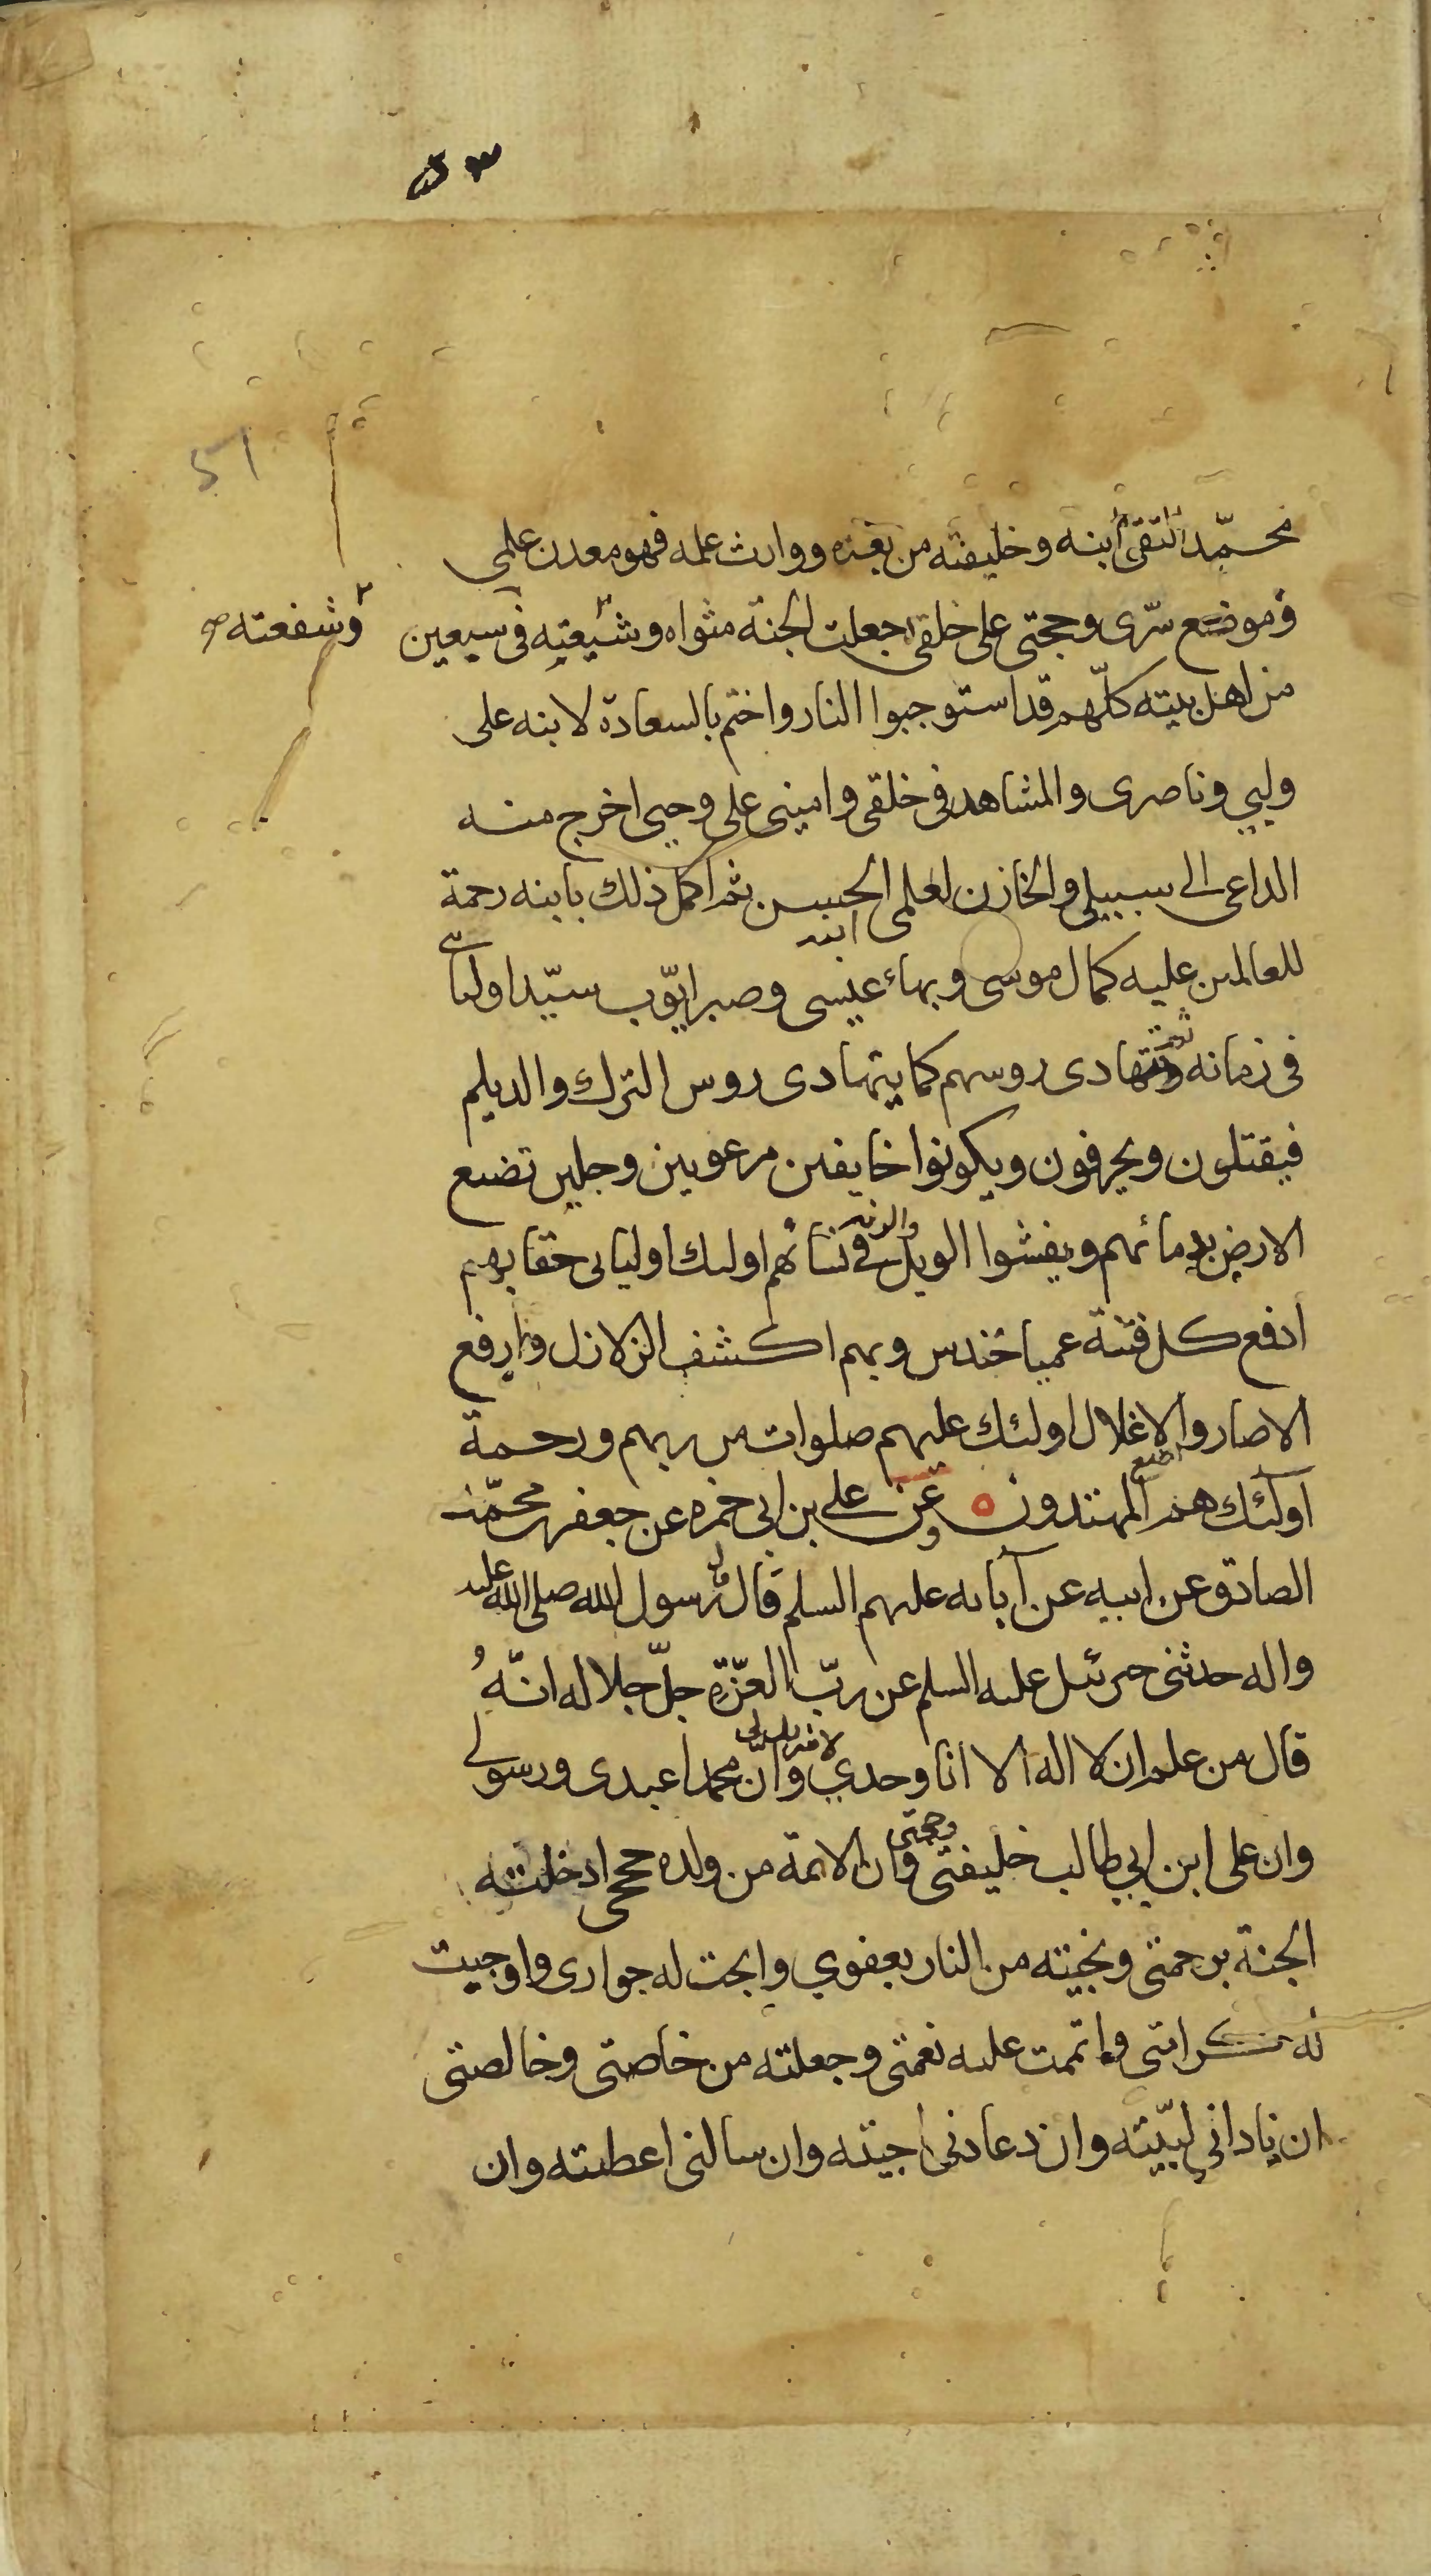 51
محمّد التقي ابنه وخليفته من بعده ووارث علمه فهو معدن علمي
وموضع سرّى وحجتى على خلقى جعلت الجنة مثواه وشيعته فى سبعين
وشفعته صح
من اهل بيته كلّهم قد استوجبوا النار واختم بالسعادة لابنه على
وليي وناصرى والمشاهد فى خلقى وامينى على وحيى اخرج منه
الداعى الى سبيلى والخازن لعلمى الحسن ثم اكمل ذلك بابنه رحمة
للعالمين عليه كمال موسى وبهاء عيسى وصبر ايّوب سيّد اوليائى
فى زمانه وتتهادى روسهم كما يتهادى روس الترك والديلم
فيقتلون ويحرقون ويكونوا خايفين مرعوبين وجلين تضبع
الارض بدمائهم ويفشوا الويل والرنه فى نسائهم اولئك اوليائى حقا بهم
ادفع كل فتنة عميا حندس وبهم اكشف الزلازل وارفع
الاصار والاغلال اولئك عليهم صلوات من ربهم ورحمة
اولئك هم المهتدون ه وعن على بن ابى حمزه عن جعفر بن محمّد
الصادق عن ابيه عن آبائه عليهم السلم قال قال رسول الله صلى الله عليه
واله حدثنى جبرئيل عليه السلم عن ربّ العزّة جلّ جلاله انّهُ
قال من علم ان لا اله الا انا وحدي لا شريك لى وان محمدا عبدى ورسولى
وان على ابن ابي طالب خليفتى وحجتى وان الائمة من ولده حججى ادخلته
الجنة برحمتى ونجيته من النار بعفوي وابحت له جوارى واوجبت
له كرامتى واتممت عليه نعمتى وجعلته من خاصتى وخالصتى
ان ناداني لبّيته وان دعانى اجبته وان سالنى اعطيته وان